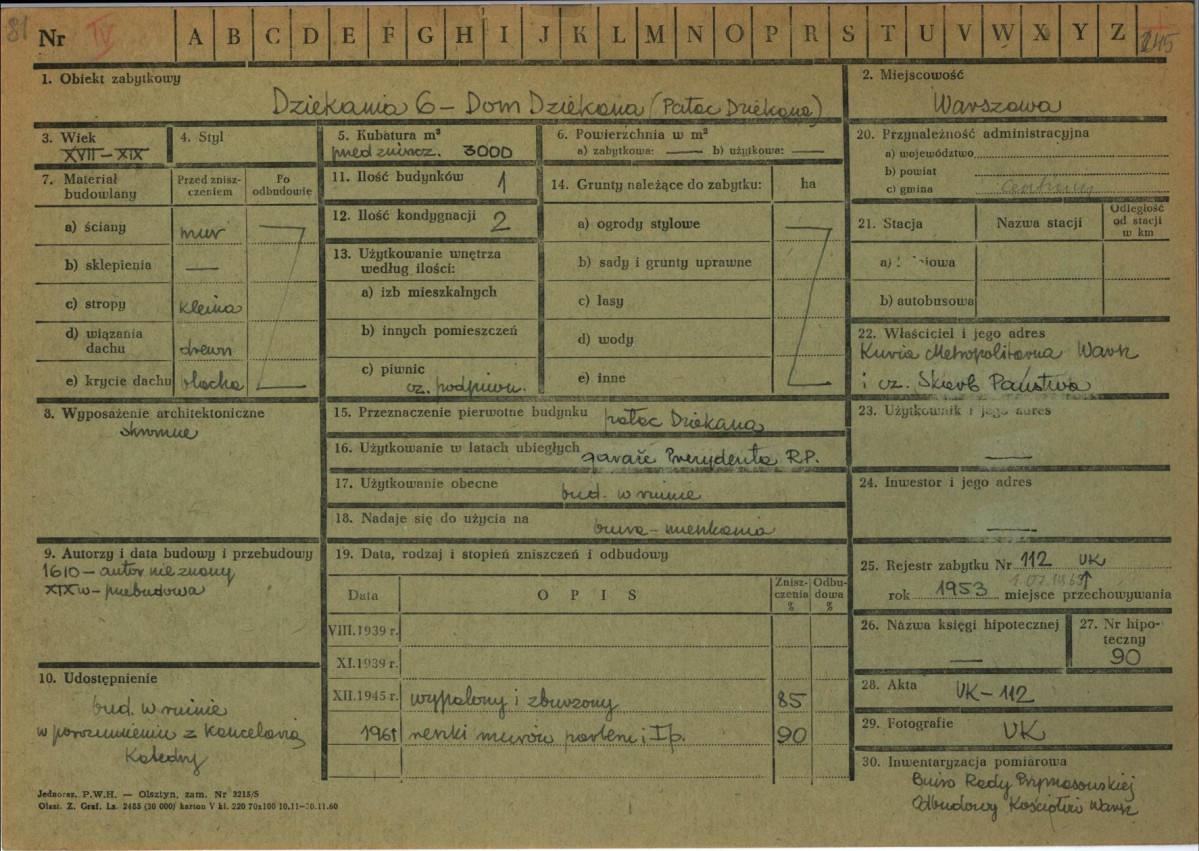 81
Nr IV A B C D E F G H I J K L M N O P R S T U V W X Y Z 145
1. Obiekt zabytkowy
Dziekania 6 – Dom Dziekana (Pałac Dziekana)
2. Miejscowość
Warszawa
3. Wiek
XVII – XIX
4. Styl
5. Kubatura m³
przed zniszcz. 3000
6. Powierzchnia w m²
a) zabytkowa: — b) użytkowa: —
7. Materiał budowlany
Przed zniszczeniem
Po odbudowie
a) ściany mur
b) sklepienia —
c) stropy kleina
d) wiązania dachu drewn
e) krycie dachu blacha
8. Wyposażenie architektoniczne
skromne
9. Autorzy i data budowy i przebudowy
1610 – autor nieznany
XIX w – przebudowa
10. Udostępnienie
bud. w ruinie
w porozumieniu z Kancelarią
Katedry
11. Ilość budynków 1
12. Ilość kondygnacji 2
13. Użytkowanie wnętrza według ilości:
a) izb mieszkalnych
b) innych pomieszczeń
c) piwnic
cz. podpiwn.
14. Grunty należące do zabytku: ha
a) ogrody stylowe
b) sady i grunty uprawne
c) lasy
d) wody
e) inne
15. Przeznaczenie pierwotne budynku pałac Dziekana
16. Użytkowanie w latach ubiegłych garaże Prezydenta R.P.
17. Użytkowanie obecne
bud. w ruinie
18. Nadaje się do użycia na
biura – mieszkania
19. Data, rodzaj i stopień zniszczeń i odbudowy
Data O P I S Zniszczenia % Odbudowa %
VIII.1939 r.
XI.1939 r.
XII.1945 r. wypalony i zburzony 85
1961 resztki murów parteru i I p. 90
20. Przynależność administracyjna
a) województwo
b) powiat
c) gmina
21. Stacja Nazwa stacji Odległość od stacji w km
a)
b) autobusowa
22. Właściciel i jego adres
Kuria Metropolitarna Warsz
i cz. Skarb Państwa
23. Użytkownik i jego adres
—
24. Inwestor i jego adres
—
25. Rejestr zabytku Nr 112 UK
1.07.1965
rok 1953 miejsce przechowywania
26. Nazwa księgi hipotecznej
—
27. Nr hipoteczny
90
28. Akta UK – 112
29. Fotografie UK
30. Inwentaryzacja pomiarowa
Biuro Rady Prymasowskiej
Odbudowy Kościołów Warsz
Jednoraz. P.W.H. — Olsztyn, zam. Nr 3215/S
Olszt. Z. Graf. Lz. 2485 (20 000) karton V kl. 220 70x100 10.11—30.11.60